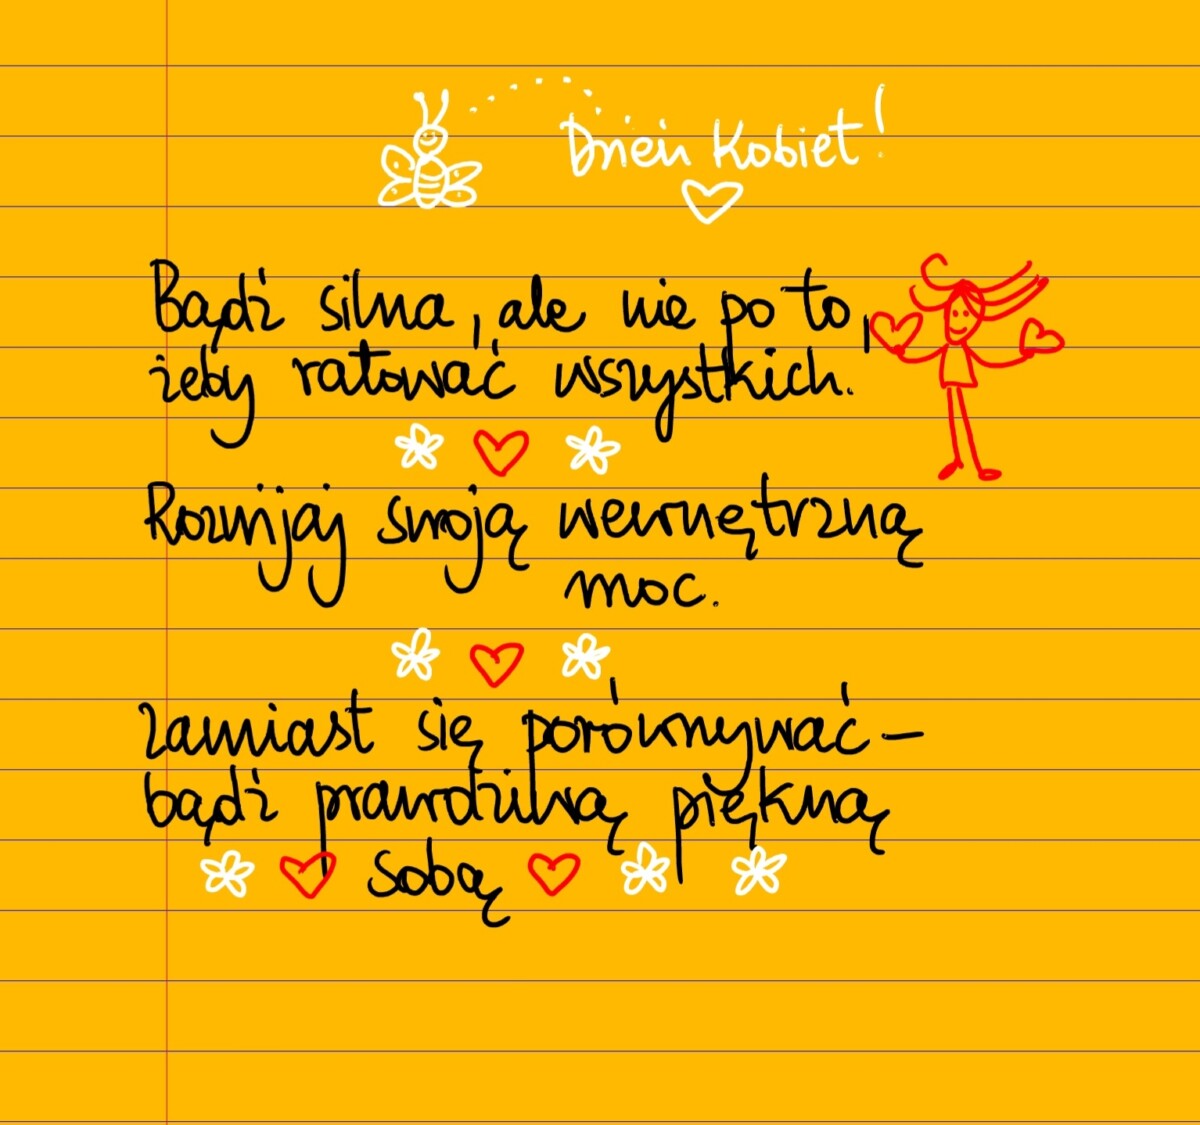 Dzień Kobiet!
Bądź silna, ale nie po to,
żeby ratować wszystkich.
Rozwijaj swoją wewnętrzną
moc.
Zamiast się porównywać –
bądź prawdziwą piękną
sobą